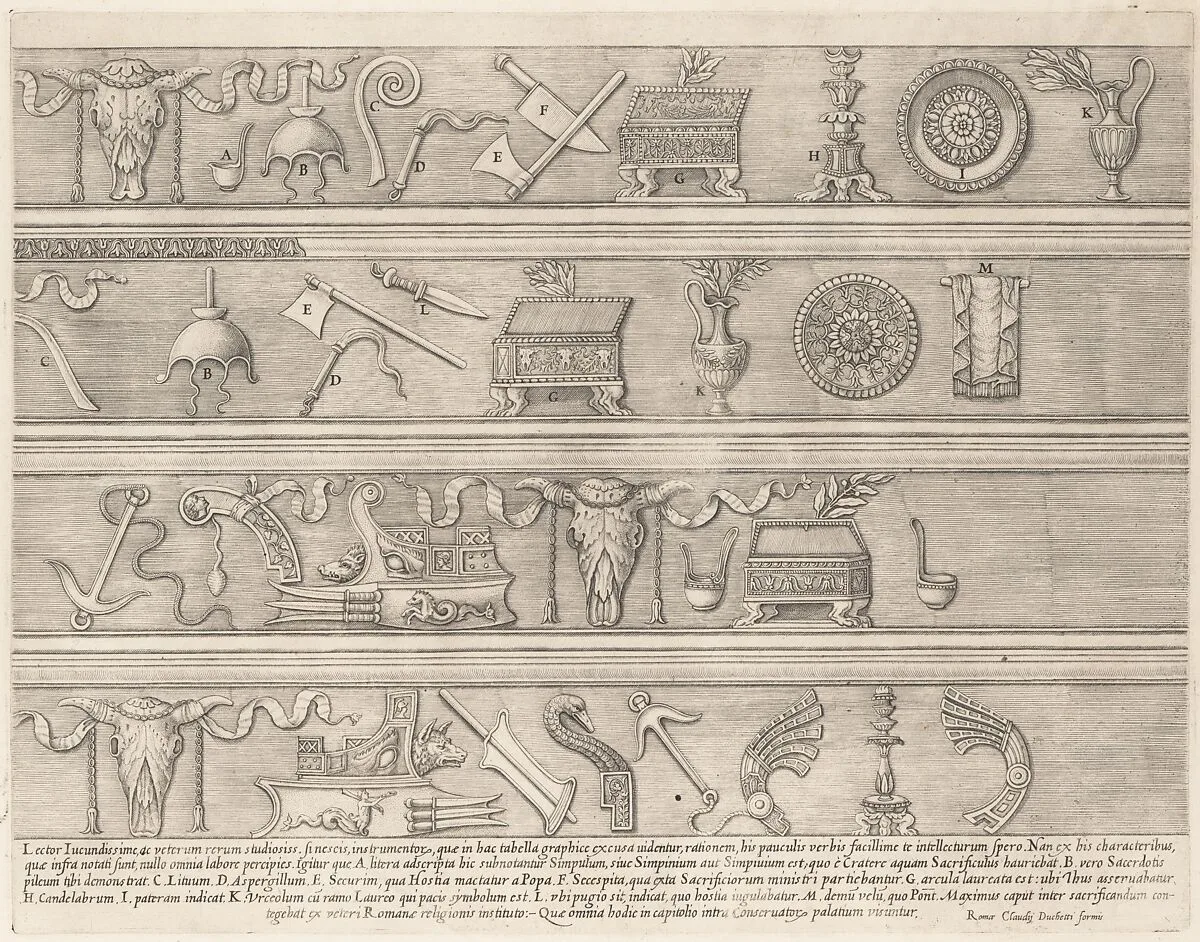 A
B
C
D
E
F
G
H
I
K
C
B
E
D
L
G
K
M
Lector Iucundissime, ac veterum rerum studiosiss. si nescis, instrumentoꝝ, quæ in hac tabella graphice excusa uidentur, rationem, his pauculis verbis facillime te intellecturum spero. Nan ex his characteribus,
quæ infra notati sunt, nullo omnia labore percipies. Igitur que A. litera adscripta hic subnotantur Simpulum, siue Simpinium aut Simpuuium est, quo è Cratere aquam Sacrificulus hauriebat. B. vero Sacerdotis
pileum tibi demonstrat. C. Lituum. D. Aspergillum. E. Securim, qua Hostia mactatur a Popa. F. Secespita, qua exta Sacrificiorum ministri partiebantur. G. arcula laureata est: ubi Thus asseruabatur
H. Candelabrum. I. pateram indicat. K. Vrceolum cū ramo Laureo qui pacis symbolum est. L. vbi pugio sit, indicat, quo hostia iugulabatur. M. demū velū, quo Pont̄. Maximus caput inter sacrificandum con-
tegebat ex veteri Romanæ religionis instituto:- Quæ omnia hodie in capitolio intra Conseruatoꝝ palatium visuntur.
Romæ Claudij Duchetti formis